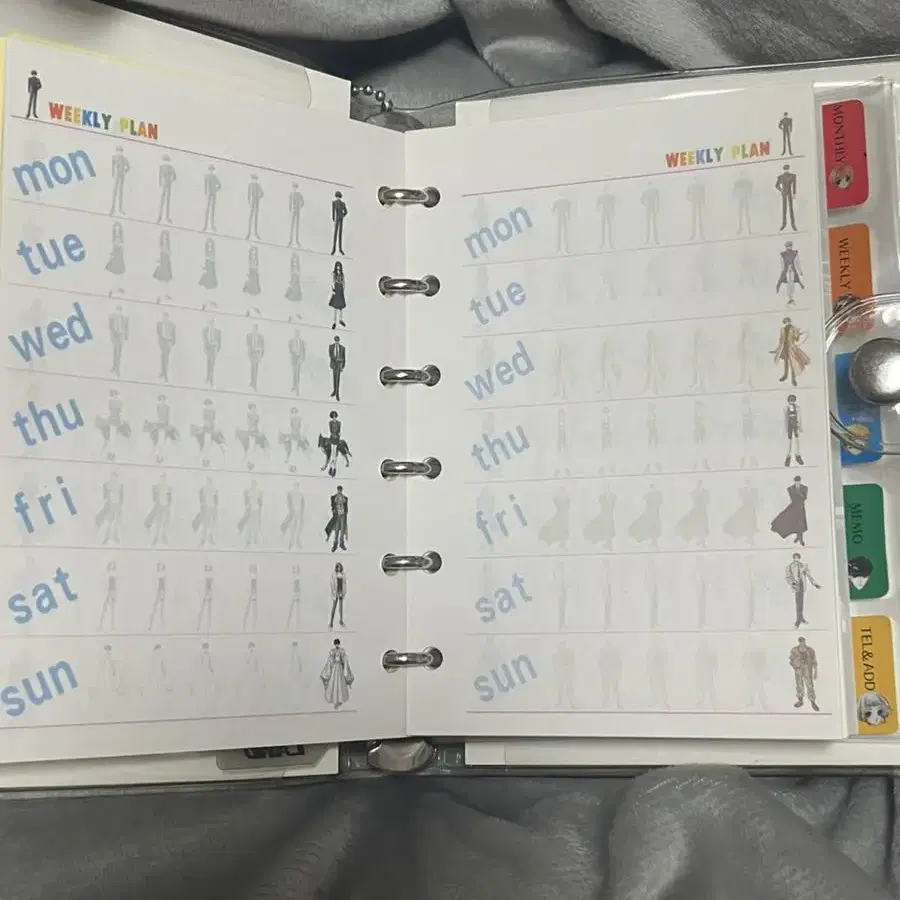 WEEKLY PLAN
mon
tue
wed
thu
fri
sat
sun
WEEKLY PLAN
mon
tue
wed
thu
fri
sat
sun
MONTHLY
WEEKLY
MEMO
TEL&ADD